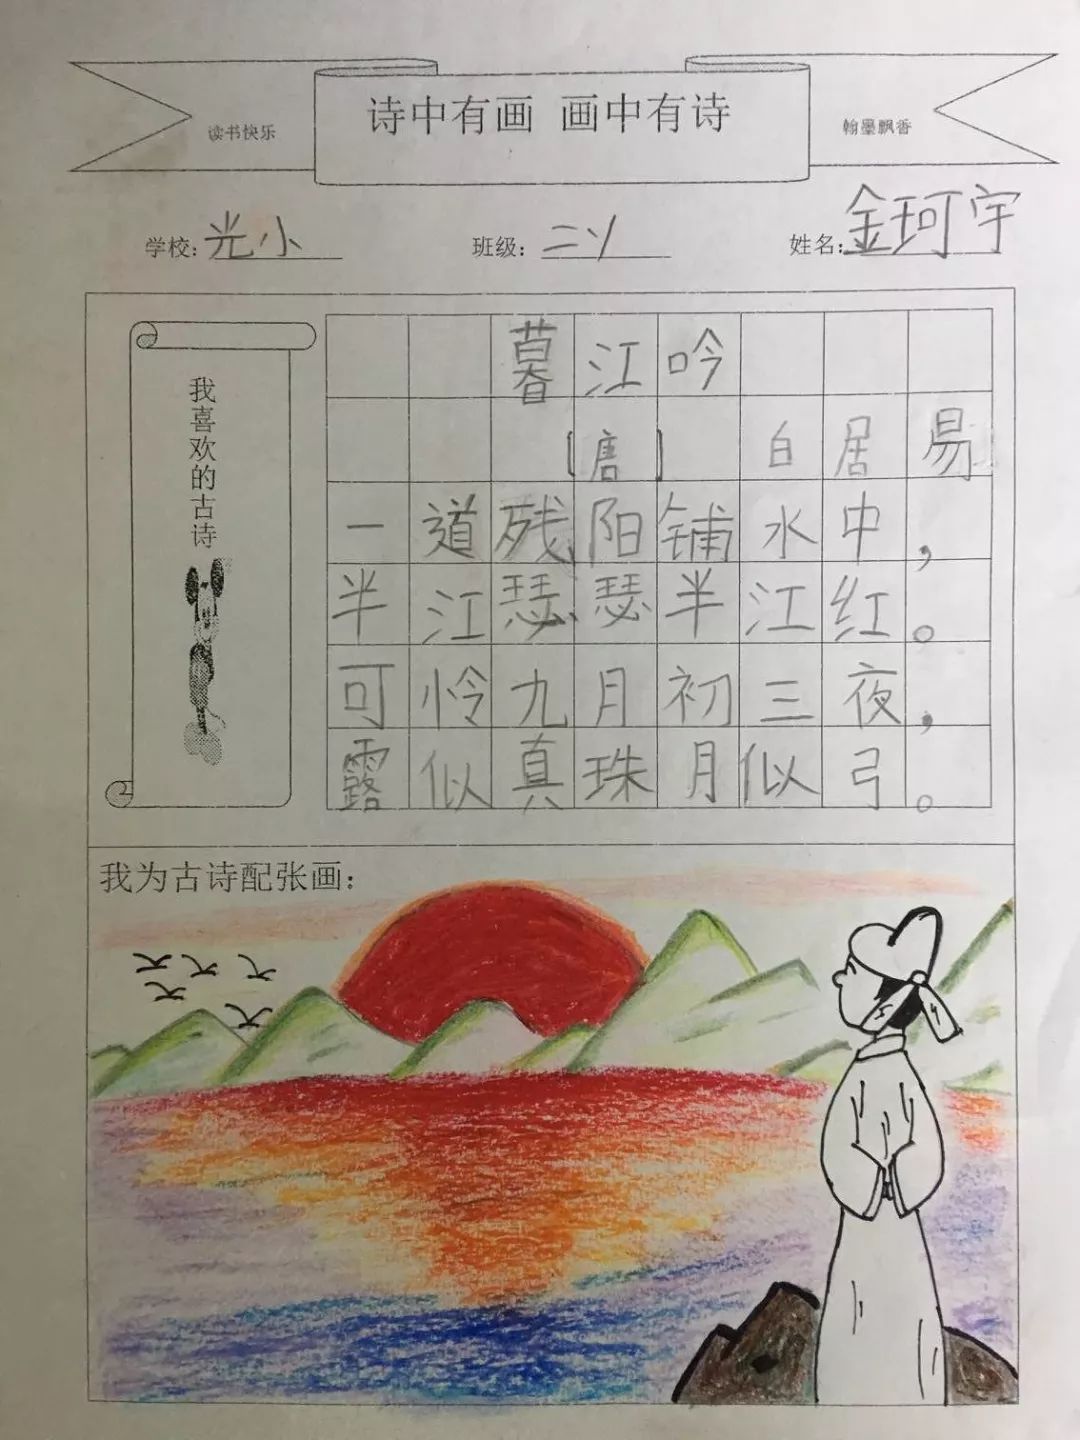 诗中有画 画中有诗
读书快乐
翰墨飘香
学校：光小
班级：二丫
姓名：金珂宇
我喜欢的古诗
暮江吟
[唐] 白居易
一道残阳铺水中，
半江瑟瑟半江红。
可怜九月初三夜，
露似真珠月似弓。
我为古诗配张画：